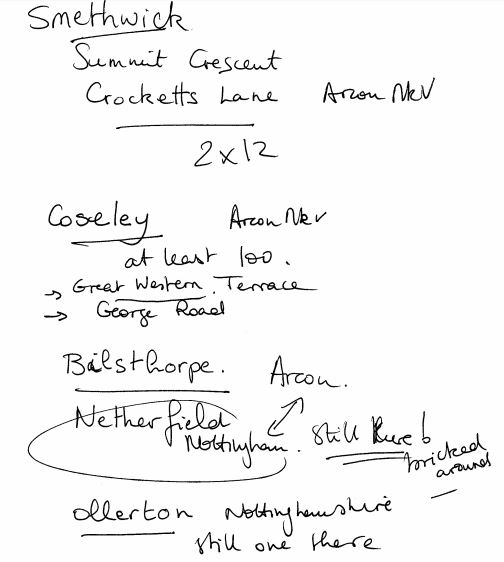 Smethwick
Summit Crescent
Crocketts Lane Arcon MkV
2x12
Coseley Arcon MkV
at least 100.
→ Great Western Terrace
→ George Road
Bilsthorpe. Arcon.
Netherfield
Nottingham. Still there!
bricked
around
Ollerton Nottinghamshire
still one there